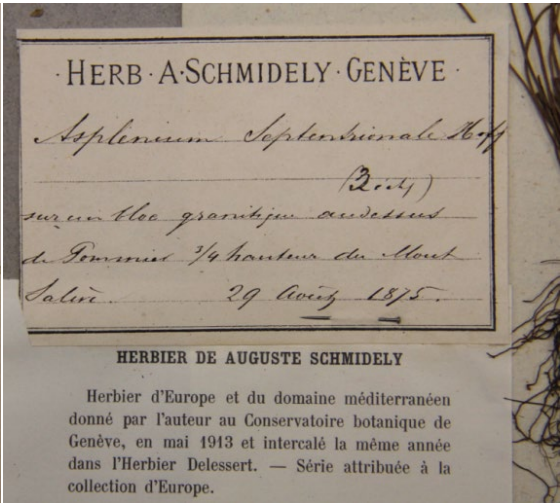 · HERB · A · SCHMIDELY · GENÈVE ·
Asplenium Septentrionale Hoff
sur un bloc granitique au dessus
de Pommier 3/4 hauteur du Mont
Salève. 29 Août 1875.
HERBIER DE AUGUSTE SCHMIDELY
Herbier d'Europe et du domaine méditerranéen
donné par l'auteur au Conservatoire botanique de
Genève, en mai 1913 et intercalé la même année
dans l'Herbier Delessert. — Série attribuée à la
collection d'Europe.